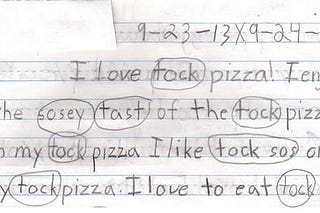 9-23-13 X 9-24-
I love tock pizza! I en
he sosey tast of the tock pizz
my tock pizza I like tock sos o
y tock pizza. I love to eat tock